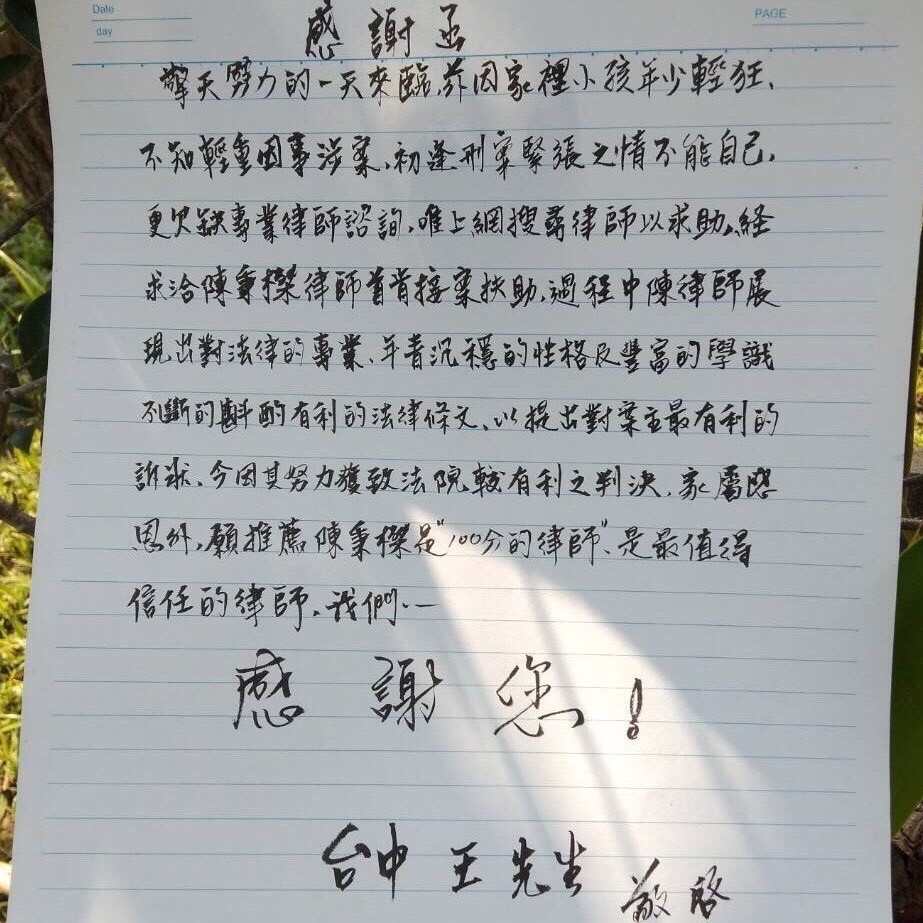 Date
day
PAGE
感謝函
擎天努力的一天來臨,茲因家裡小孩年少輕狂、
不知輕重因事涉案,初逢刑案緊張之情不能自己,
更欠缺專業律師諮詢,唯上網搜尋律師以求助,経
求洽陳秉榤律師首肯接案扶助,過程中陳律師展
現出對法律的專業、年青沉穩的性格及豐富的學識
不斷的斟酌有利的法律條文、以提出對案主最有利的
訴求,今因其努力獲致法院較有利之判決,家屬感
恩外,願推薦陳秉榤是"100分的律師"、是最值得
信任的律師、我們...
感謝您!
台中 王先生 敬啓